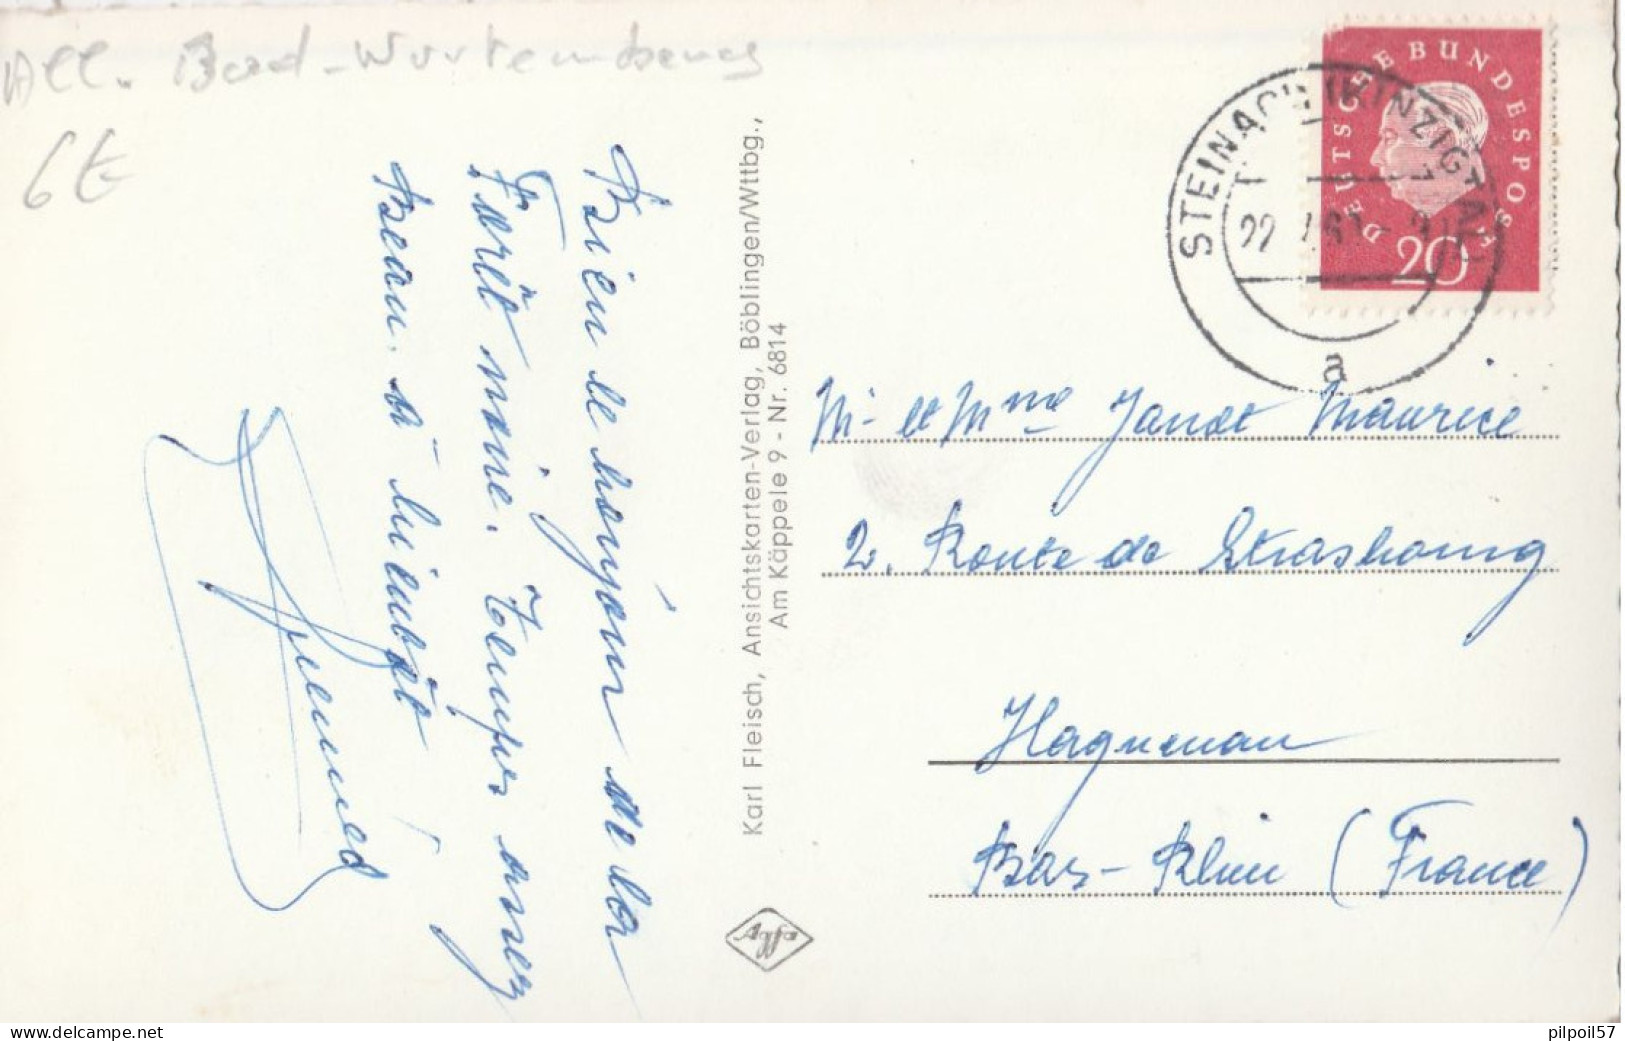 All. Bad-Wurtemberg
6€
Bien le bonjour de la
Forêt noire. Temps assez
beau. à bientôt !
Karl Fleisch, Ansichtskarten-Verlag, Böblingen/Wttbg.,
Am Käppele 9 - Nr. 6814
DEUTSCHE BUNDESPOST
20
STEINACH (KINZIGTAL)
22
a
M. et Mme Jandt Maurice
2. Route de Strasbourg
Haguenau
Bas-Rhin (France)
www.delcampe.net
pilpoil57